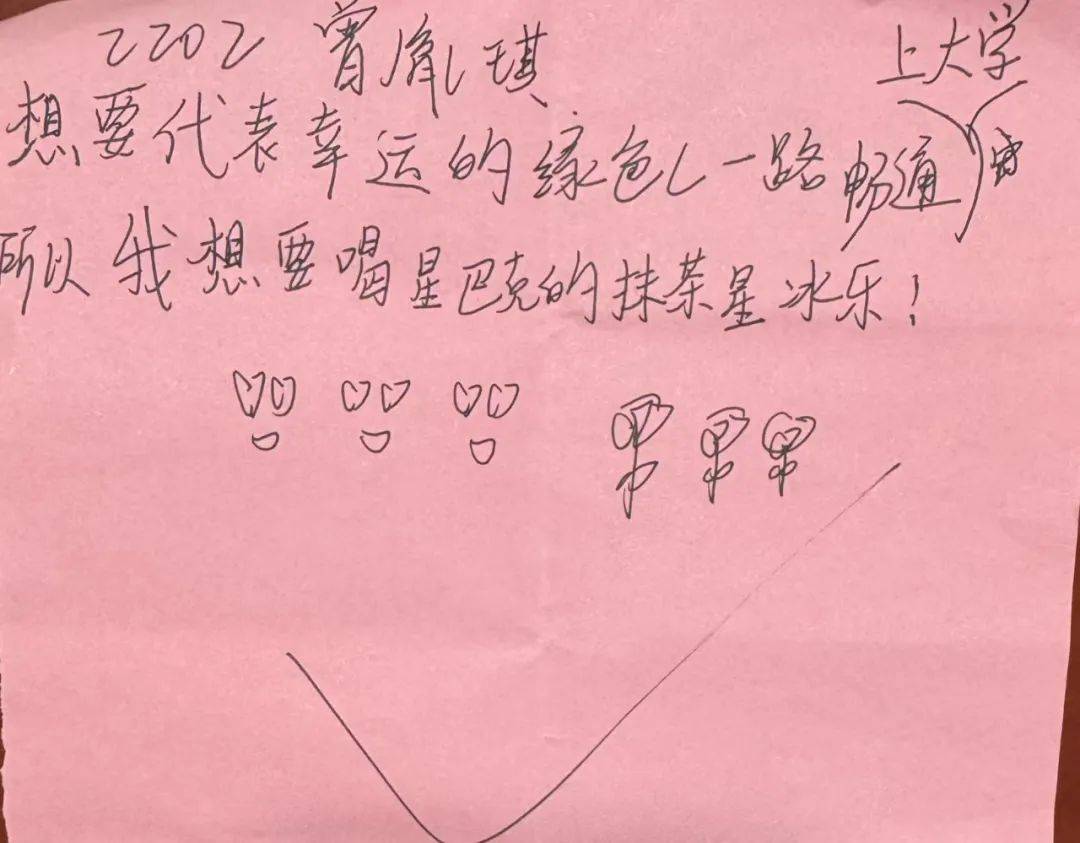 2202 曾胤琪
想要代表幸运的绿色(一路畅通上大学)
所以我想要喝星巴克的抹茶星冰乐!